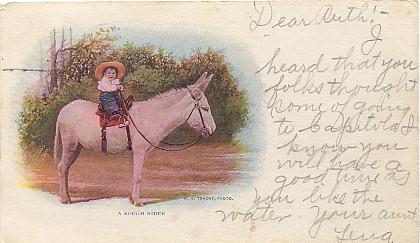 Dear Ruth!-
I
heard that you
folks thought
some of going
to Capitola I
know you
will have a
good time as
you like the
water. Your aunt
Lena
A ROUGH RIDER
TRACHT, PHOTO.